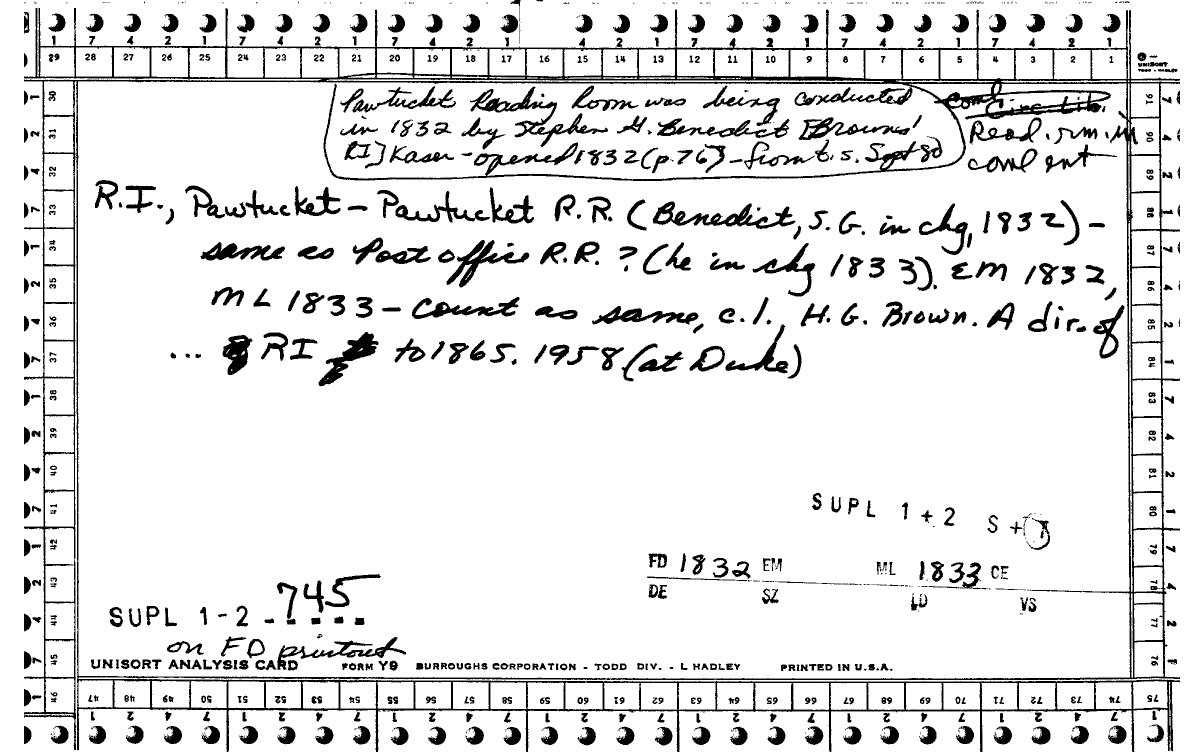 7 4 2 1 7 4 2 1 7 4 2 1 4 2 1 7 4 2 1 7 4 2 1 7 4 2 1
29 28 27 26 25 24 23 22 21 20 19 18 17 16 15 14 13 12 11 10 9 8 7 6 5 4 3 2 1
UNISORT
TODD - HADLEY
Pawtucket Reading Room was being conducted
in 1832 by Stephen G. Benedict [Browns'
RI] Kaser - opened 1832 (p. 76) - from t.s. Sept 80
coml
Circ Lib.
Read. rm. in
coml ent
R.I., Pawtucket - Pawtucket R.R. (Benedict, S.G. in chg, 1832) -
same as Post office R.R.? (he in chg 1833). EM 1832,
ML 1833 - Count as same, c.l., H.G. Brown. A dir. of
... RI to 1865. 1958 (at Duke)
SUPL 1 + 2 S + 7
FD 1832 EM ML 1833 CE
DE SZ LD VS
SUPL 1-2 745
on FD printout
UNISORT ANALYSIS CARD FORM Y9 BURROUGHS CORPORATION - TODD DIV. - L HADLEY PRINTED IN U.S.A.
30 31 32 33 34 35 36 37 38 39 40 41 42 43 44 45 46
91 90 89 88 87 86 85 84 83 82 81 80 79 78 77 76
47 48 49 50 51 52 53 54 55 56 57 58 59 60 61 62 63 64 65 66 67 68 69 70 71 72 73 74 75
1 2 4 7 1 2 4 7 1 2 4 7 1 2 4 7 1 2 4 7 1 2 4 7 1 2 4 7 1